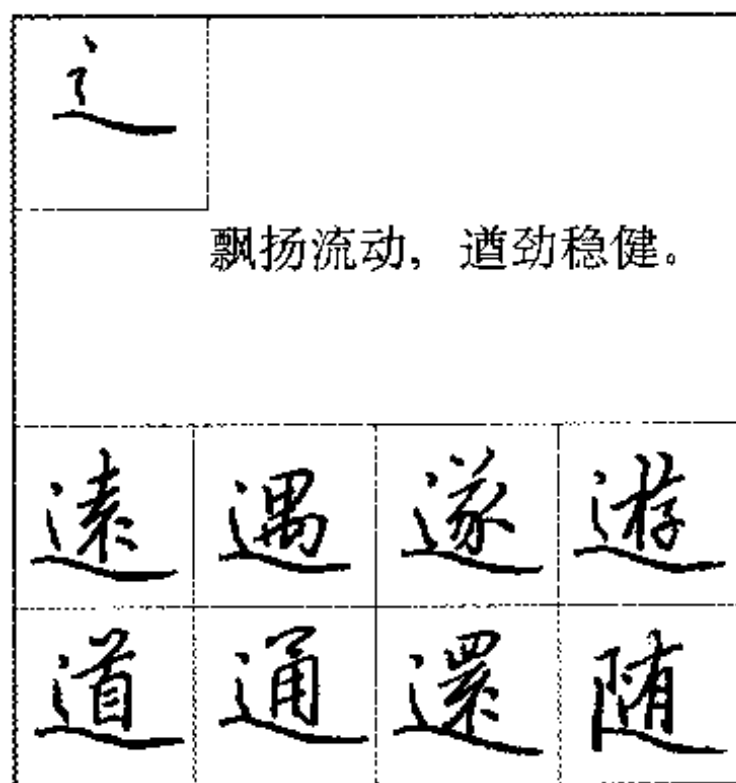 辶
飘扬流动，遒劲稳健。
遠 遇 遂 遊
道 通 還 随